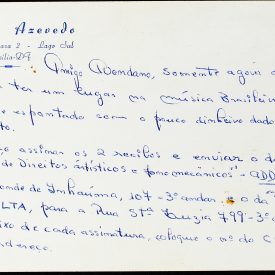 Azevedo
asa 2 - Lago Sul
ília-DF
Amigo Avendano, somente agora
ter um lugar na música Brasileira
e espantado com o pouco dinheiro dado
to.
assinar os 2 recibos e enviar o da
de Direitos Artísticos e fonomecânicos" - ADD
onde de Inhaúma, 107 - 3º andar. e o da
LTA, para a Rua Stª Luzia 799 - 3º
ixo de cada assinatura, coloque o nº da C
ndereço.